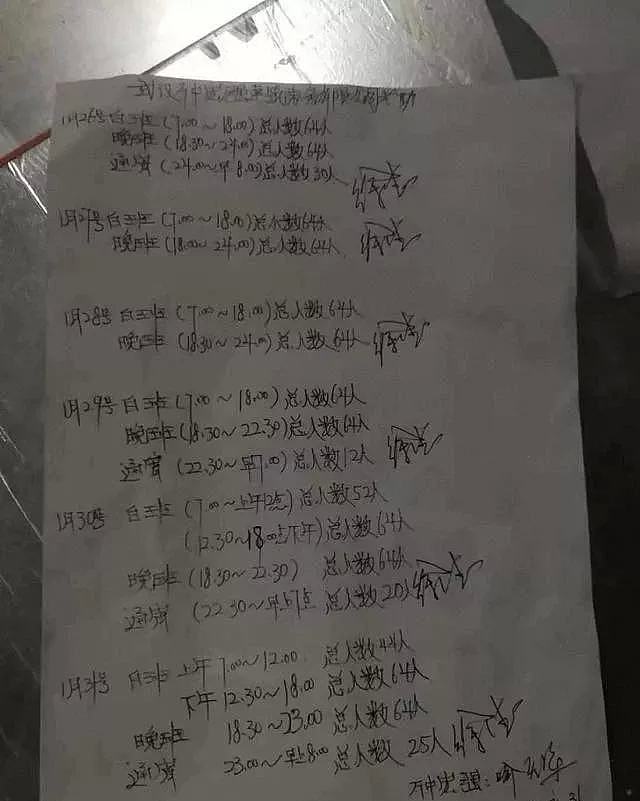 1月26号 白班 (7.00～18.00) 总人数64人
晚班 (18.30～24.00) 总人数64人
通宵 (24.00～早8.00) 总人数30人
1月27号 白班 (7.00～18.00) 总人数64人
晚班 (18.00～24.00) 总人数64人
1月28号 白班 (7.00～18.00) 总人数64人
晚班 (18.30～24.00) 总人数64人
1月29号 白班 (7.00～18.00) 总人数64人
晚班 (18.30～22.30) 总人数64人
通宵 (22.30～早7.00) 总人数12人
1月30号 白班 (7.00～上午12点) 总人数52人
(12.30～18.00点下午) 总人数64人
晚班 (18.30～22.30) 总人数64人
通宵 (22.30～早上7点 总人数20)
1月31号 白班 上午 7.00～12.00 总人数44人
下午 12.30～18.00 总人数64人
晚班 18.30～23.00 总人数64人
通宵 23.00～早上8.00 总人数 25人